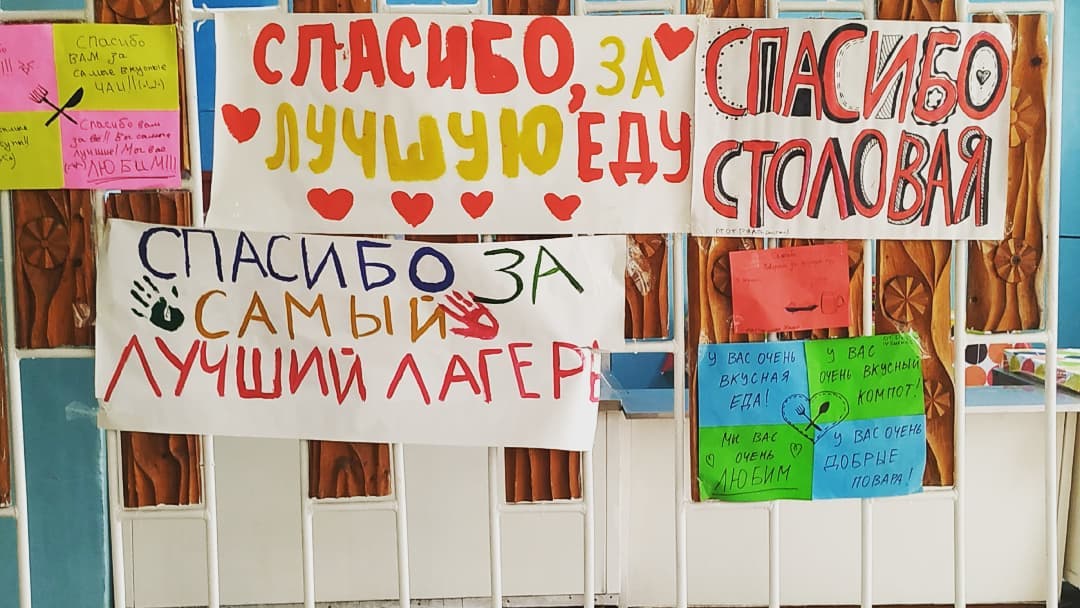 !!!
Спасибо
ВАМ за
самые вкусные
ЧАИ!!!
Спасибо вам
за всё!! Вы самые
лучшие! Мы вас
ЛЮБИМ!!!
СПАСИБО, ЗА
ЛУЧШУЮ ЕДУ
СПАСИБО
СТОЛОВАЯ
СПАСИБО ЗА
САМЫЙ
ЛУЧШИЙ ЛАГЕРЬ
У ВАС ОЧЕНЬ
ВКУСНАЯ
ЕДА!
У ВАС
ОЧЕНЬ ВКУСНЫЙ
КОМПОТ!
МЫ ВАС
ОЧЕНЬ
ЛЮБИМ
У ВАС ОЧЕНЬ
ДОБРЫЕ
ПОВАРА!